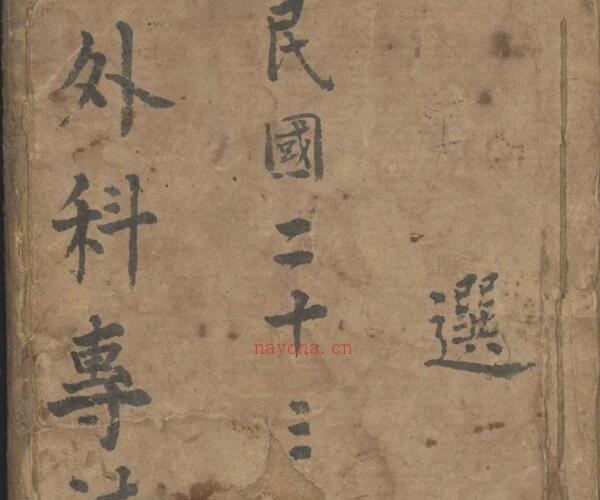 選
民國二十三
外科專
nayona.cn